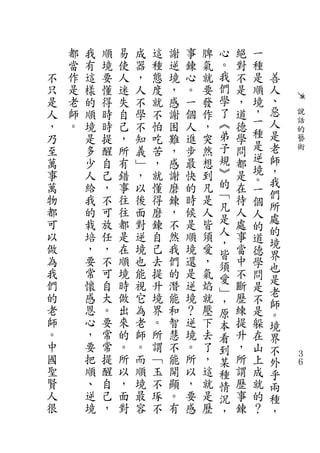 說話的藝術
善人、惡人是老師,我們所處的境界也是老師。境界不外乎兩種,
一種是順境,一種是逆境。一個人的道德學問是不是躲在山上成就的?
絕對不是,道德學問都是在待人處事當中不斷歷練提升,所謂歷事鍊
心。我們學了《弟子規》的「凡是人,皆須愛」,原本看到某種情況,
脾氣就要發作,突然想到凡是人皆須愛,氣焰就壓下去了,這就是歷
事鍊心。一個人進步最快的時候是順境還是逆境?逆境。所以,要感
謝逆境,感謝困難,感謝磨鍊,不然我們的潛能和智慧不能開顯。有
這種態度就不怕吃苦,就懂得磨鍊自己去提升境界。所謂「玉不琢不
成器,人不學不知義」,以後面對逆境也能視它為老師。而順境最容
易使人迷失自己,所有錯事往往都是在順境時做出來的。所以,面對
順境要懂得時時提醒自己,不可放任,不可自大。要常常提醒自己,
我有這樣的順境是多少人給我的栽培,要常懷感恩心,要把順、逆境
都當作是老師。
不只是人,乃至萬事萬物都可以做為我們的老師。中國聖賢人很
36